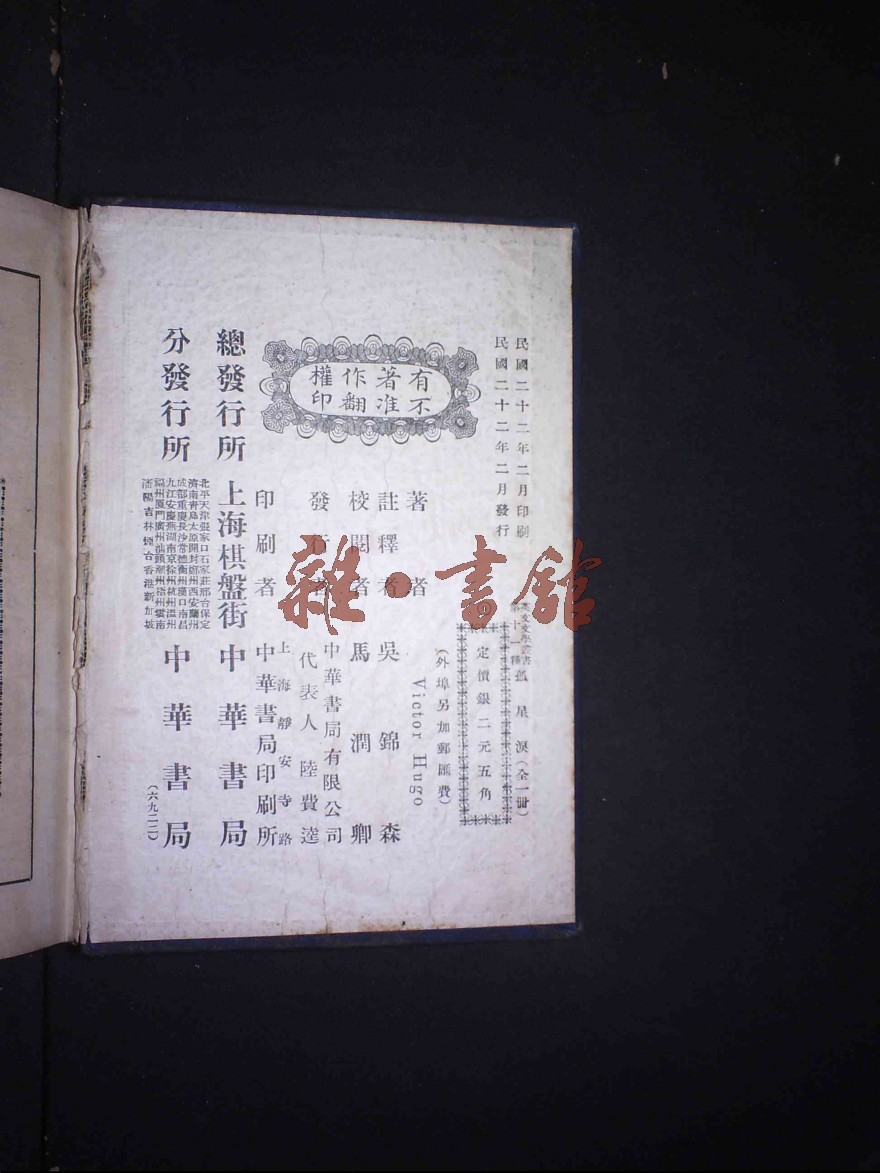 民國二十二年二月印刷
民國二十二年二月發行
英文文學叢書
第十一種
孤星淚(全一冊)
定價銀二元五角
(外埠另加郵匯費)
有著作權
不准翻印
著者 Victor Hugo
註釋者 吳錦森
校閱者 馬潤卿
發行者 中華書局有限公司
代表人 陸費逵
印刷者 上海靜安寺路
中華書局印刷所
總發行所 上海棋盤街 中華書局
分發行所
北平天津張家口石家莊邢台保定
濟南青島太原開封鄭州西安蘭州
成都重慶長沙常德衡州漢口南昌
九江安慶蕪湖南京徐州杭州溫州
福州厦門廣州汕頭潮州梧州雲南
瀋陽吉林煙台香港新加坡
中華書局
(六九二二)
雜·書館